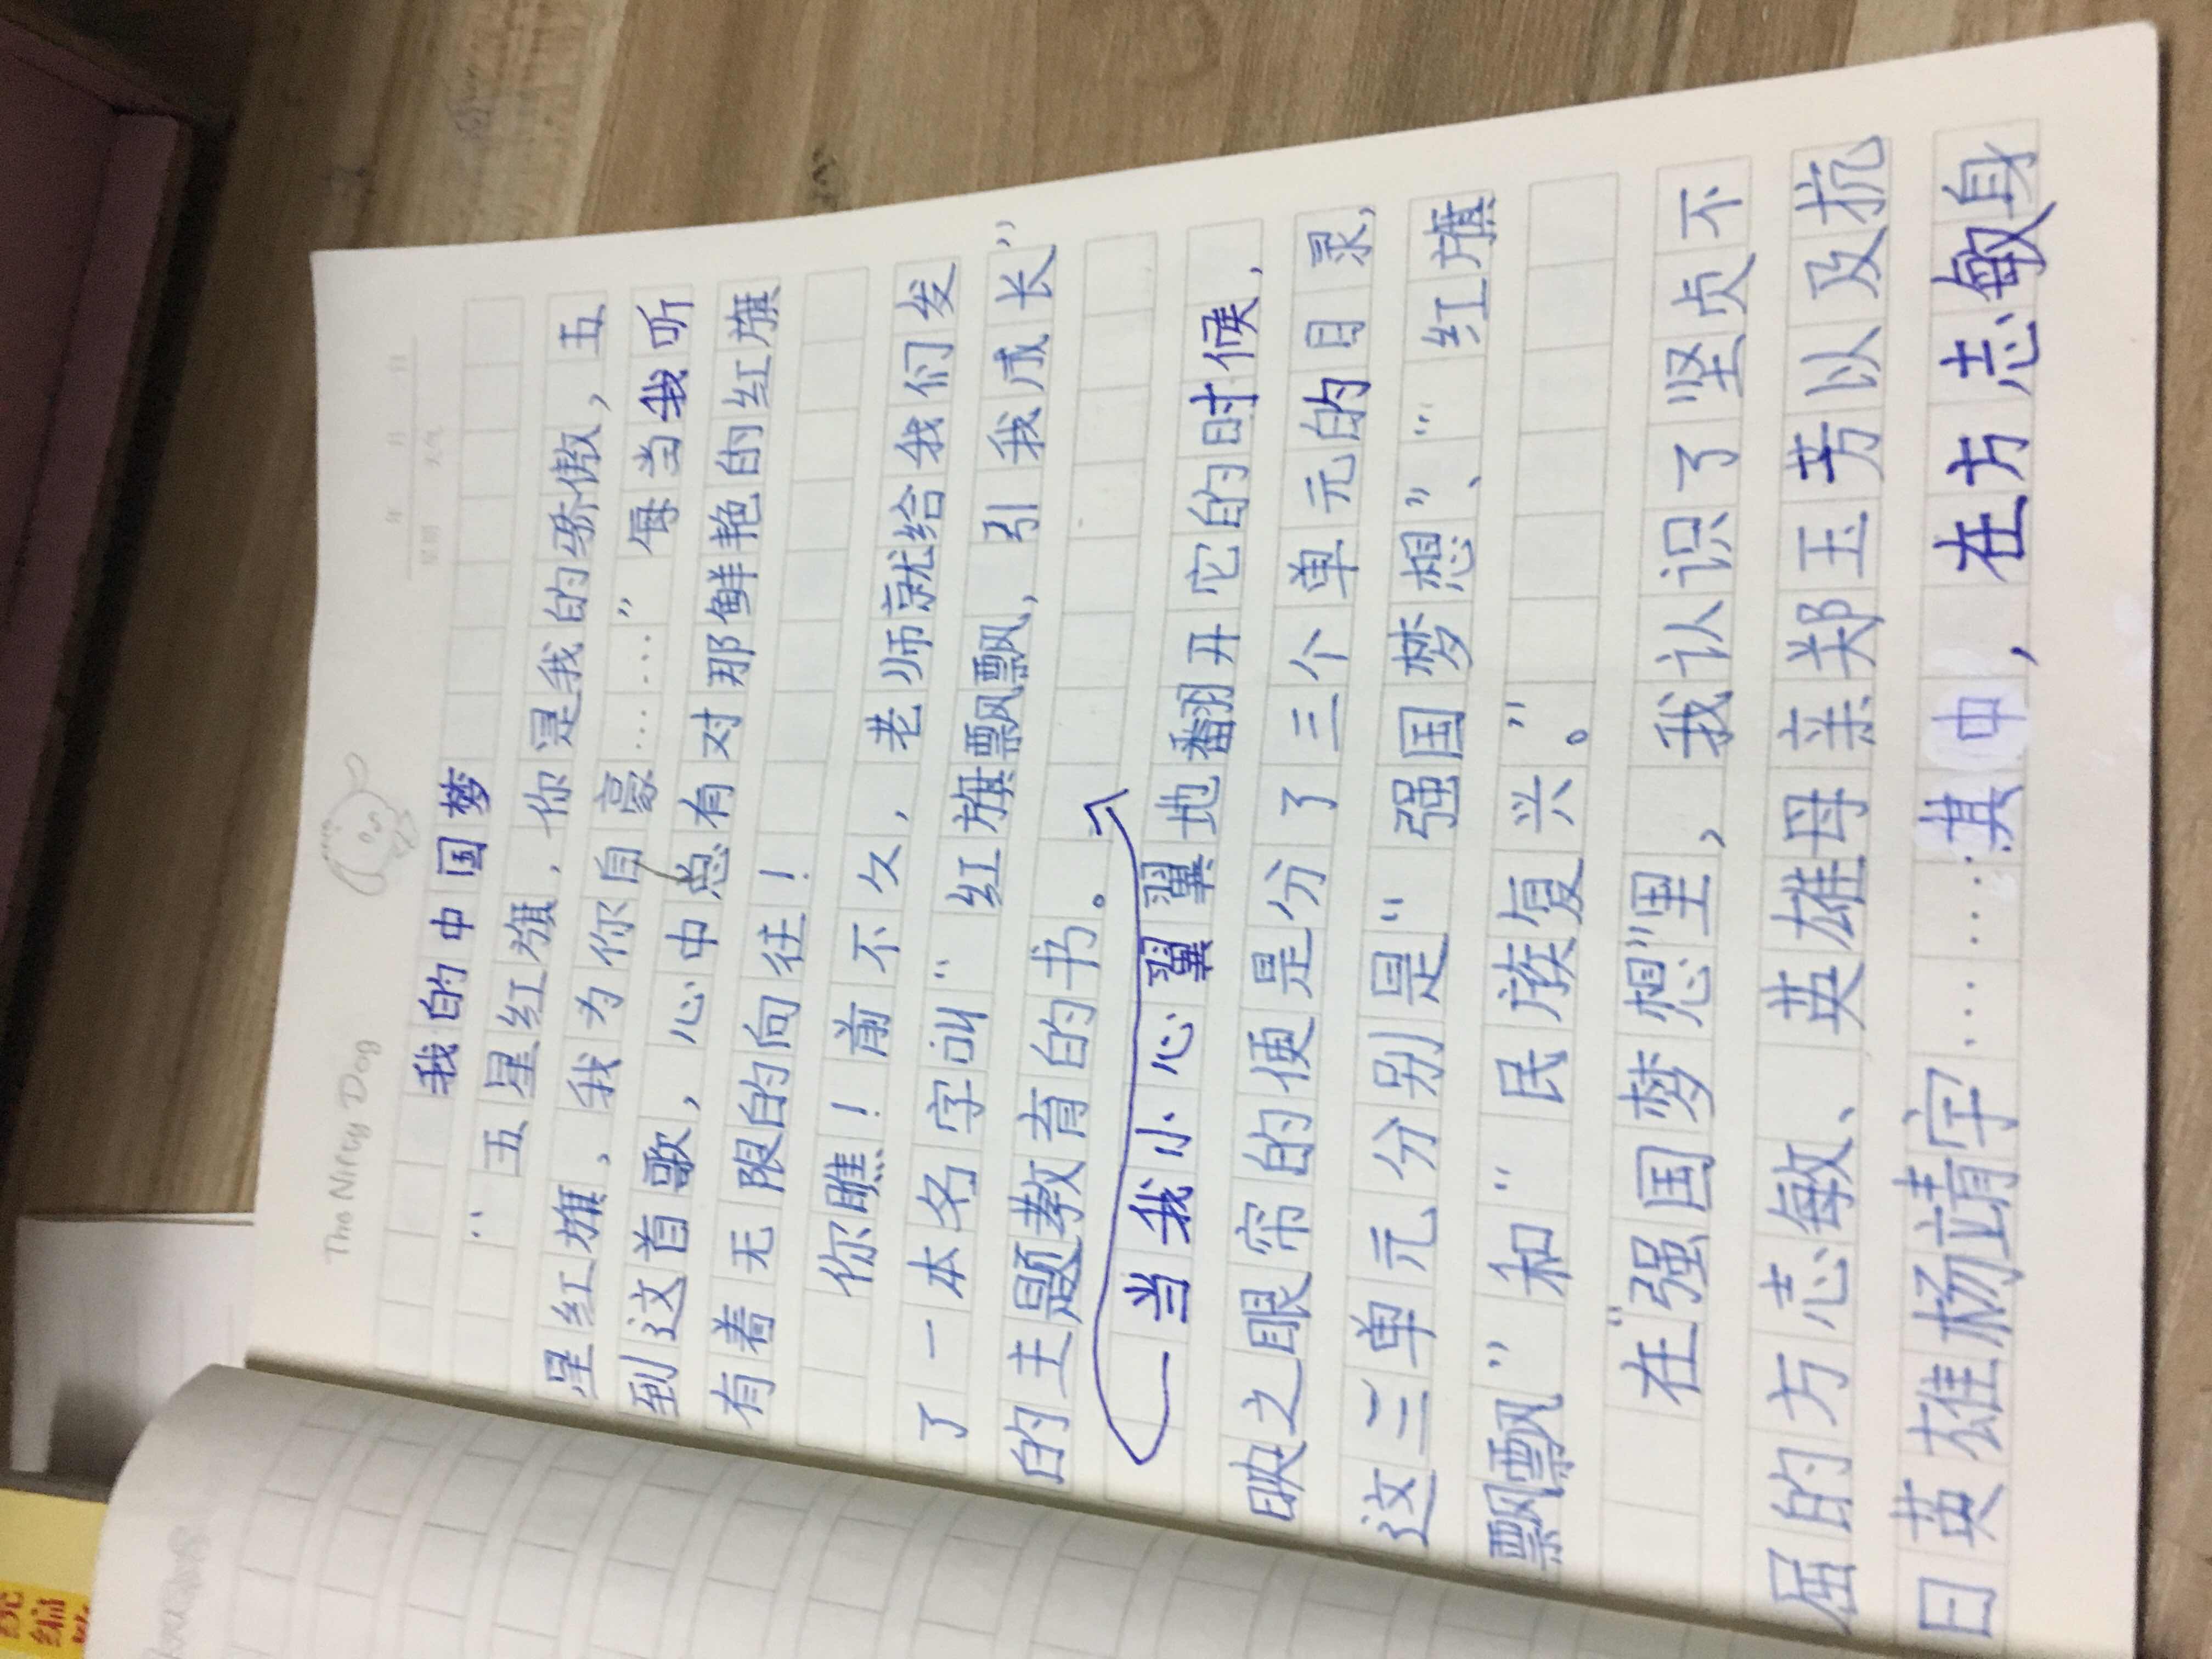 The Nifty Dog
年 月 日
星期 天气
我的中国梦
“五星红旗，你是我的骄傲，五
星红旗，我为你自豪……”每当我听
到这首歌，心中总有对那鲜艳的红旗
有着无限的向往！
你瞧！前不久，老师就给我们发
了一本名字叫“红旗飘飘，引我成长”
的主题教育的书。
当我小心翼翼地翻开它的时候，
映之眼帘的便是分了三个单元的目录，
这三单元分别是“强国梦想”、“红旗
飘飘”和“民族复兴”。
在“强国梦想”里，我认识了坚贞不
屈的方志敏、英雄母亲郑玉芳以及抗
日英雄杨靖宇……其中，在方志敏身
统
编